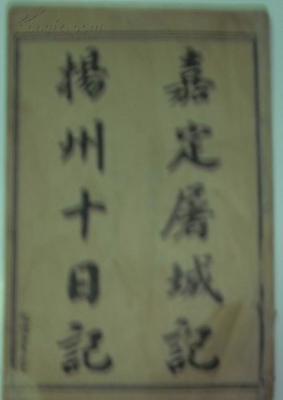 嘉定屠城記
揚州十日記